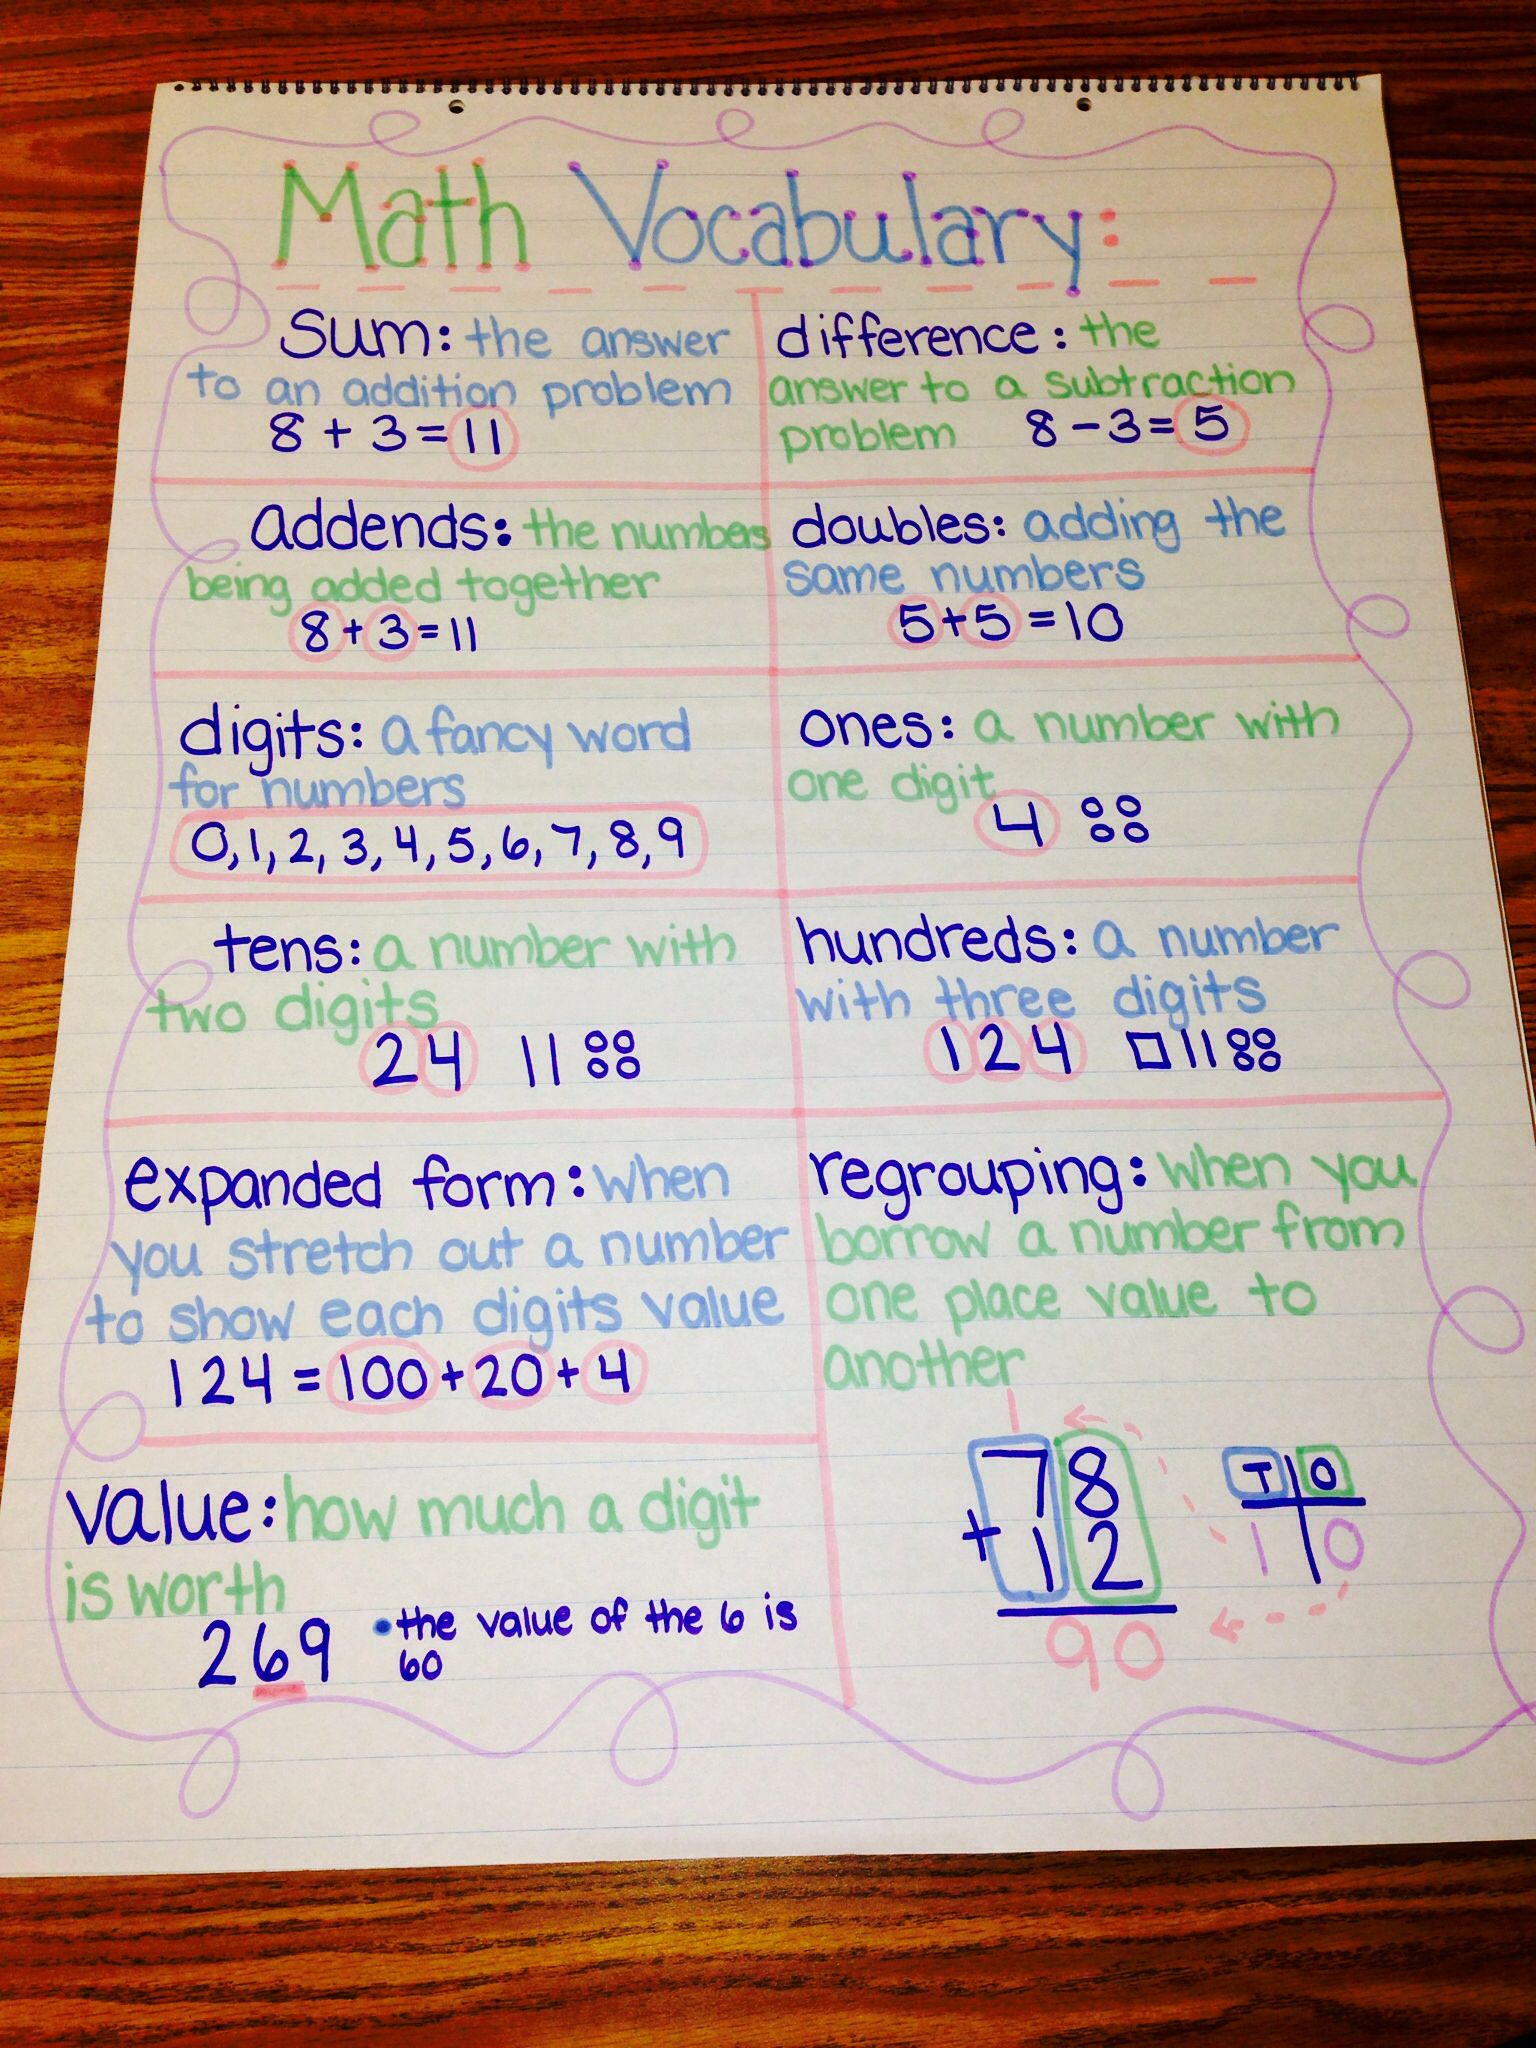 Math Vocabulary:
Sum: the answer
to an addition problem
8 + 3 = 11
difference: the
answer to a subtraction
problem 8 - 3 = 5
addends: the numbers
being added together
8 + 3 = 11
doubles: adding the
same numbers
5 + 5 = 10
digits: a fancy word
for numbers
0, 1, 2, 3, 4, 5, 6, 7, 8, 9
ones: a number with
one digit
4
tens: a number with
two digits
24
hundreds: a number
with three digits
124
expanded form: when
you stretch out a number
to show each digits value
124 = 100 + 20 + 4
regrouping: when you
borrow a number from
one place value to
another
1
78
+ 12
90
T O
1 0
value: how much a digit
is worth
269 • the value of the 6 is
60